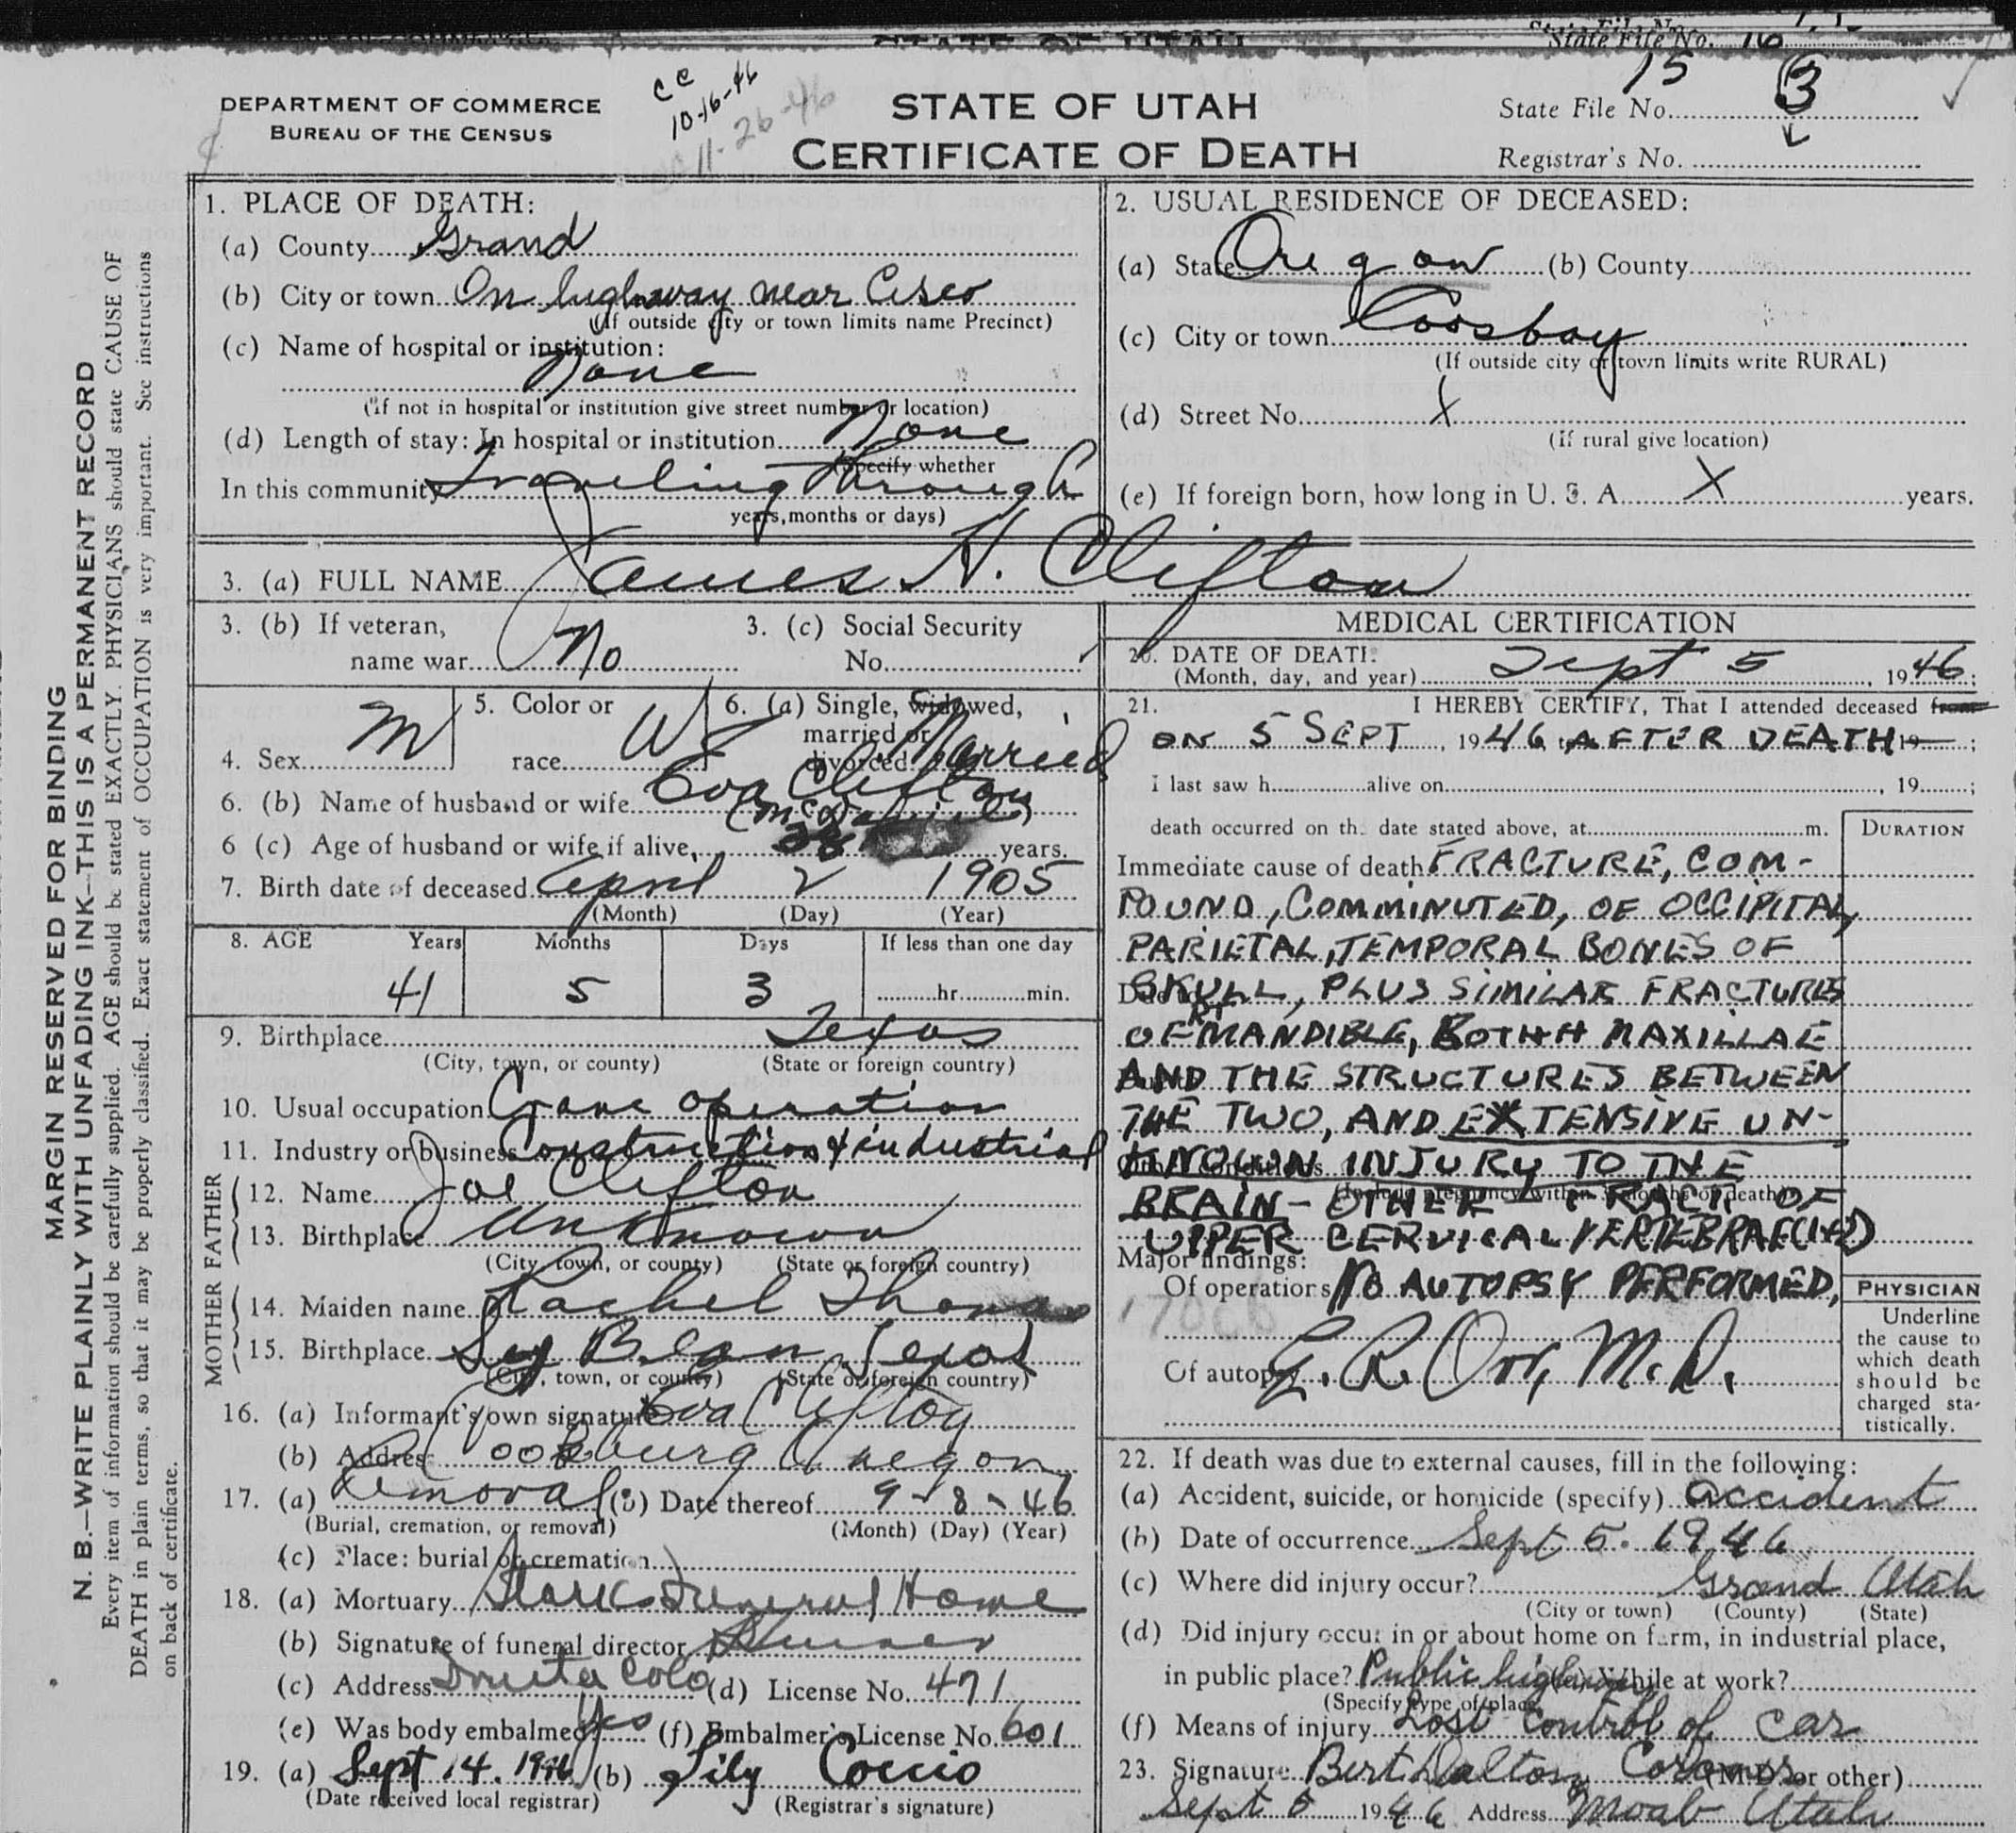 State File No. 16
DEPARTMENT OF COMMERCE
BUREAU OF THE CENSUS
CC
10-16-46
11-26-46
STATE OF UTAH
CERTIFICATE OF DEATH
15 3
State File No.
Registrar's No.
MARGIN RESERVED FOR BINDING
N. B.—WRITE PLAINLY WITH UNFADING INK—THIS IS A PERMANENT RECORD
Every item of information should be carefully supplied. AGE should be stated EXACTLY. PHYSICIANS should state CAUSE OF
DEATH in plain terms, so that it may be properly classified. Exact statement of OCCUPATION is very important. See instructions
on back of certificate.
1. PLACE OF DEATH:
(a) County Grand
(b) City or town On highway near Cisco
(If outside city or town limits name Precinct)
(c) Name of hospital or institution:
None
(If not in hospital or institution give street number or location)
(d) Length of stay: In hospital or institution None
(Specify whether
In this community Traveling through
years, months or days)
2. USUAL RESIDENCE OF DECEASED:
(a) State Oregon (b) County
(c) City or town Coosbay
(If outside city or town limits write RURAL)
(d) Street No. X
(If rural give location)
(e) If foreign born, how long in U. S. A. X years.
3. (a) FULL NAME James H. Clifton
3. (b) If veteran,
name war No
3. (c) Social Security
No.
4. Sex M
5. Color or
race W
6. (a) Single, widowed,
married or
divorced Married
6. (b) Name of husband or wife Eva Clifton
6 (c) Age of husband or wife if alive, 38 years.
7. Birth date of deceased April 2 1905
(Month) (Day) (Year)
8. AGE Years Months Days If less than one day
41 5 3 hr. min.
9. Birthplace Texas
(City, town, or county) (State or foreign country)
10. Usual occupation Crane operation
11. Industry or business Construction & industrial
FATHER
12. Name Joe Clifton
13. Birthplace Unknown
(City, town, or county) (State or foreign country)
MOTHER
14. Maiden name Rachel Thomas
15. Birthplace Texas
(City, town, or county) (State or foreign country)
16. (a) Informant's own signature Eva Clifton
(b) Address Oregon
17. (a) Removal (b) Date thereof 9-8-46
(Burial, cremation, or removal) (Month) (Day) (Year)
(c) Place: burial or cremation
18. (a) Mortuary Funeral Home
(b) Signature of funeral director
(c) Address Colo (d) License No. 471
(e) Was body embalmed? Yes (f) Embalmer's License No. 601
19. (a) Sept 14. 1946 (b) Lily Coccio
(Date received local registrar) (Registrar's signature)
MEDICAL CERTIFICATION
20. DATE OF DEATH:
(Month, day, and year) Sept 5, 1946;
21. I HEREBY CERTIFY, That I attended deceased from
ON 5 SEPT, 1946 AFTER DEATH 19 ;
I last saw h alive on , 19 ;
death occurred on the date stated above, at m.
DURATION
Immediate cause of death FRACTURE, COM-
POUND, COMMINUTED, OF OCCIPITAL,
PARIETAL, TEMPORAL BONES OF
SKULL, PLUS SIMILAR FRACTURES
OF RT MANDIBLE, BOTH MAXILLAE
AND THE STRUCTURES BETWEEN
THE TWO, AND EXTENSIVE UN-
KNOWN INJURY TO THE
(Include pregnancy within 3 months of death)
BRAIN - OTHER - FRACT. OF
UPPER CERVICAL VERTEBRAE (1+2)
Major findings:
Of operations NO AUTOPSY PERFORMED,
Of autopsy E. R. Orr, M. D.
PHYSICIAN
Underline
the cause to
which death
should be
charged sta-
tistically.
22. If death was due to external causes, fill in the following:
(a) Accident, suicide, or homicide (specify) accident
(b) Date of occurrence Sept 5. 1946
(c) Where did injury occur? Grand Utah
(City or town) (County) (State)
(d) Did injury occur in or about home on farm, in industrial place,
in public place? Public highway While at work?
(Specify type of place)
(f) Means of injury Lost control of car
23. Signature Bert Dalton Coroner (M.D. or other)
Sept 5 1946 Address Moab Utah